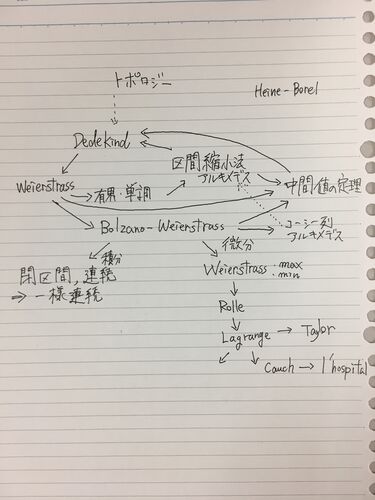 トポロジー
Heine-Borel
Dedekind
区間縮小法
アルキメデス
Weierstrass
有界・単調
中間値の定理
Bolzano-Weierstrass
コーシー列
アルキメデス
積分
微分
閉区間,連続
⇒一様連続
Weierstrass・max
・min
Rolle
Lagrange → Taylor
Cauch → l'hospital